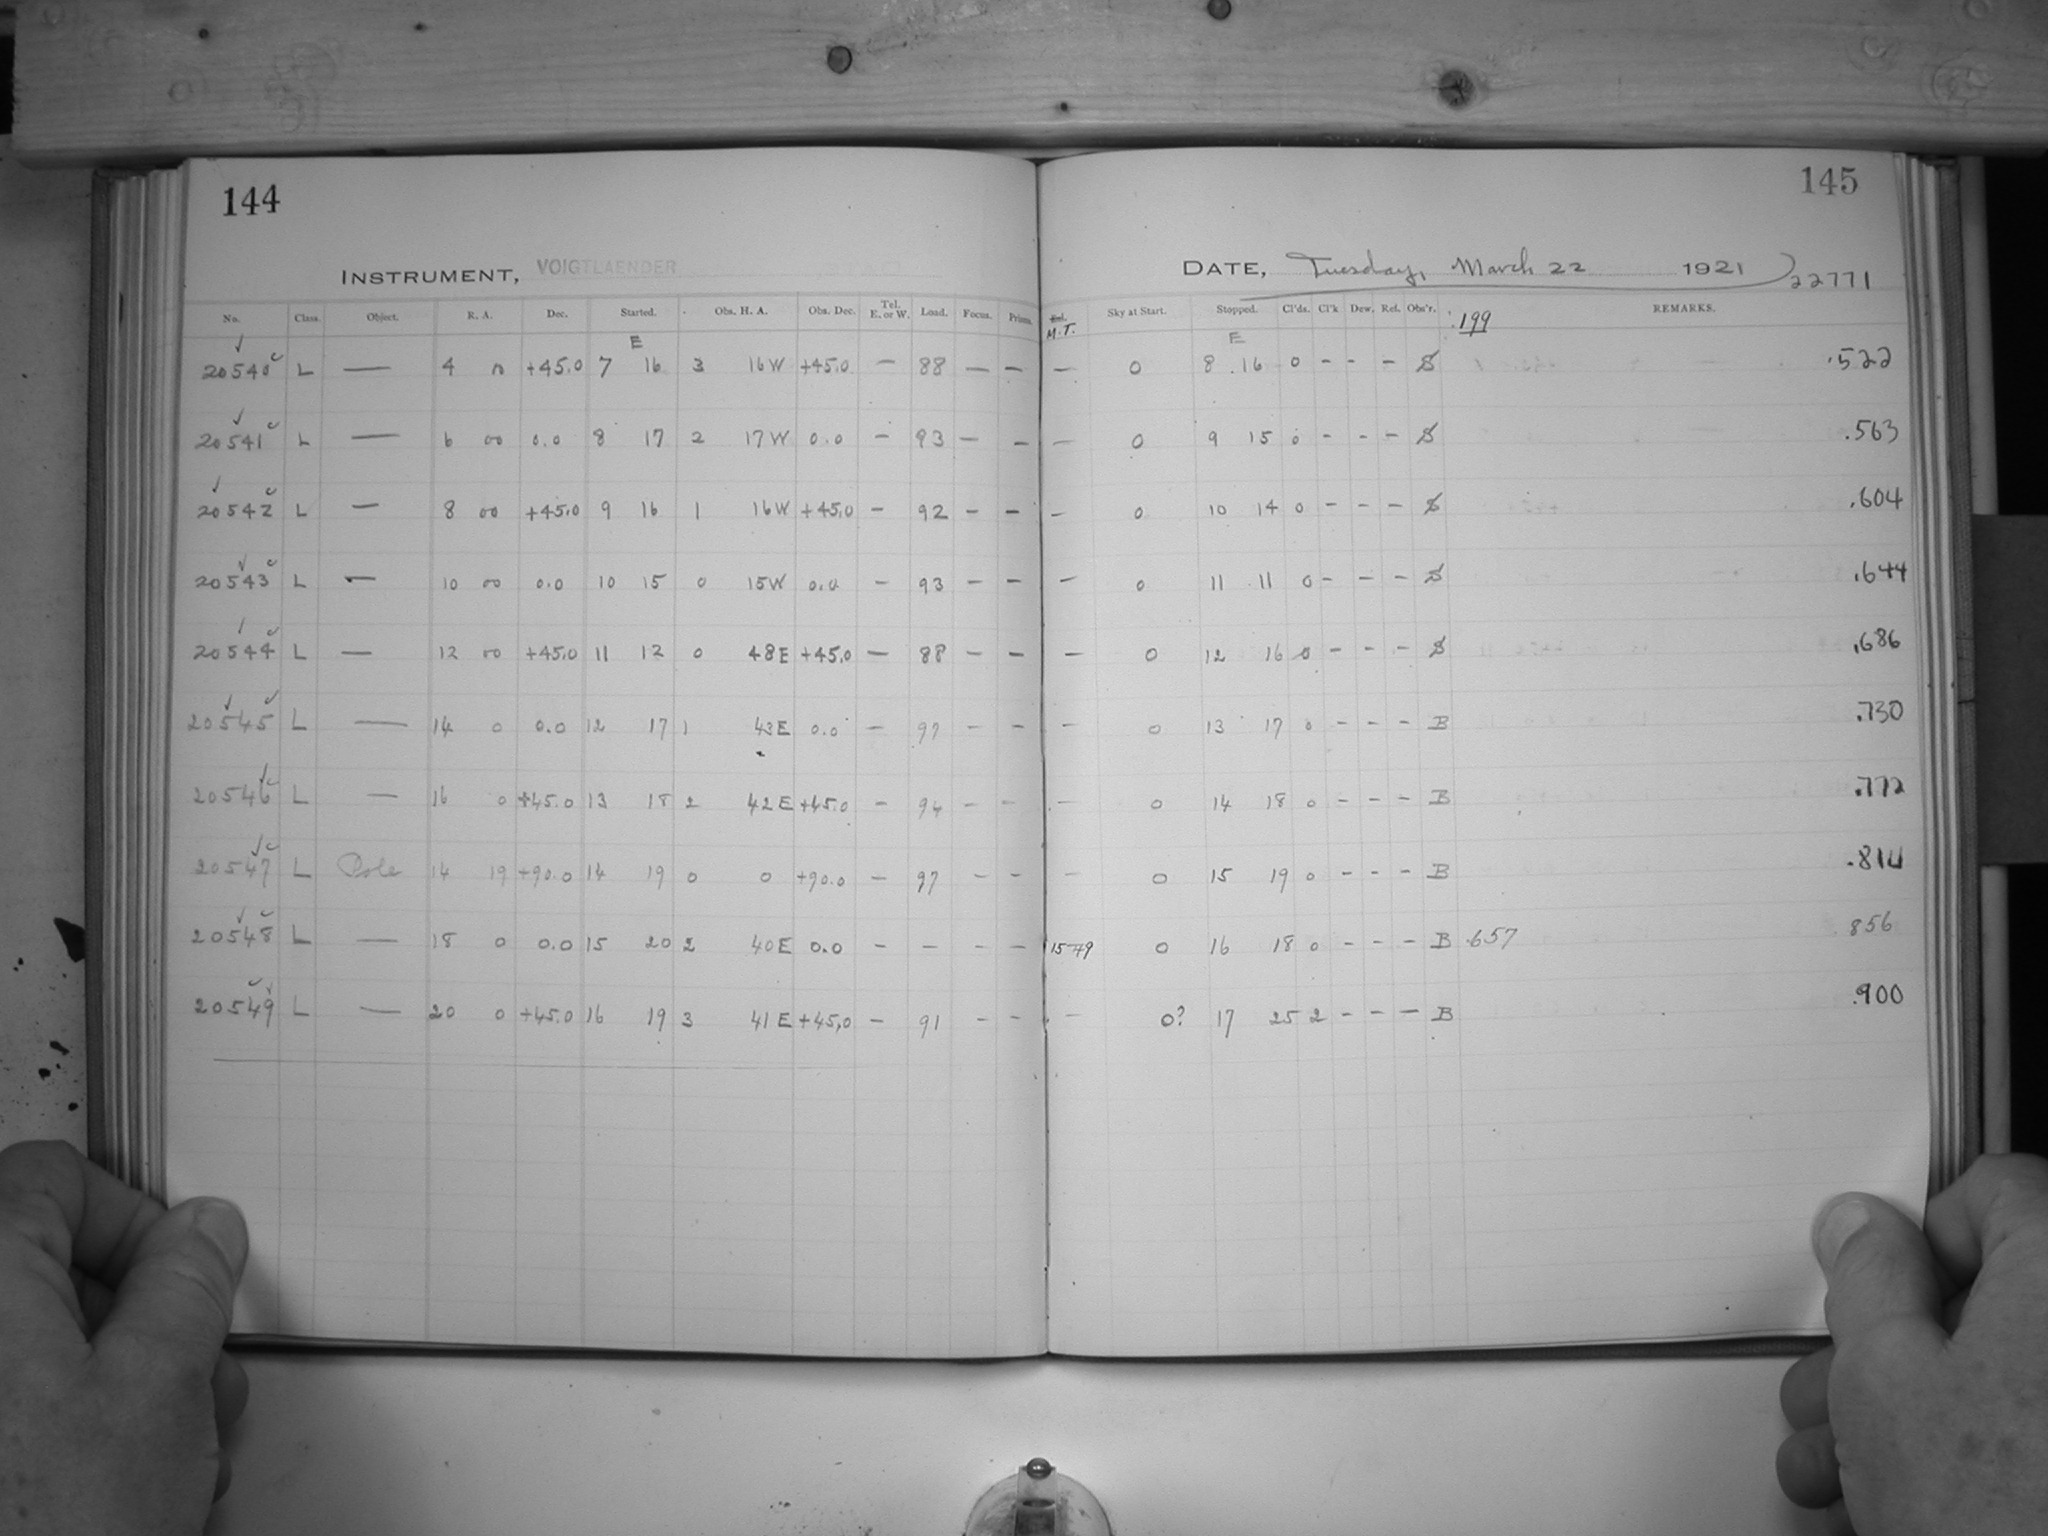 144
145
INSTRUMENT, VOIGTLAENDER
DATE, Tuesday, March 22 1921 22771
No. Class. Object. R. A. Dec. Started. Obs. H. A. Obs. Dec. Tel. E. or W. Load. Focus. Prism. M.T. Sky at Start. Stopped. Cl'ds. Cl'k Dew. Ref. Obs'r. 199 REMARKS.
E E
20540 L — 4 0 +45.0 7 16 3 16 W +45.0 — 88 — — — 0 8 16 0 - - - S .522
20541 L — 6 00 0.0 8 17 2 17 W 0.0 — 93 — — — 0 9 15 0 - - - S .563
20542 L — 8 00 +45.0 9 16 1 16 W +45.0 — 92 — — — 0 10 14 0 - - - S .604
20543 L — 10 00 0.0 10 15 0 15 W 0.0 — 93 — — — 0 11 11 0 - - - S .644
20544 L — 12 00 +45.0 11 12 0 48 E +45.0 — 88 — — — 0 12 16 0 - - - S .686
20545 L — 14 0 0.0 12 17 1 43 E 0.0 — 97 — — — 0 13 17 0 - - - B .730
20546 L — 16 0 +45.0 13 18 2 42 E +45.0 — 94 — — — 0 14 18 0 - - - B .772
20547 L Pole 14 19 +90.0 14 19 0 0 +90.0 — 97 — — — 0 15 19 0 - - - B .814
20548 L — 18 0 0.0 15 20 2 40 E 0.0 — — — — 15 49 0 16 18 0 - - - B .657 856
20549 L — 20 0 +45.0 16 19 3 41 E +45.0 — 91 — — — 0? 17 25 2 - - - B .900